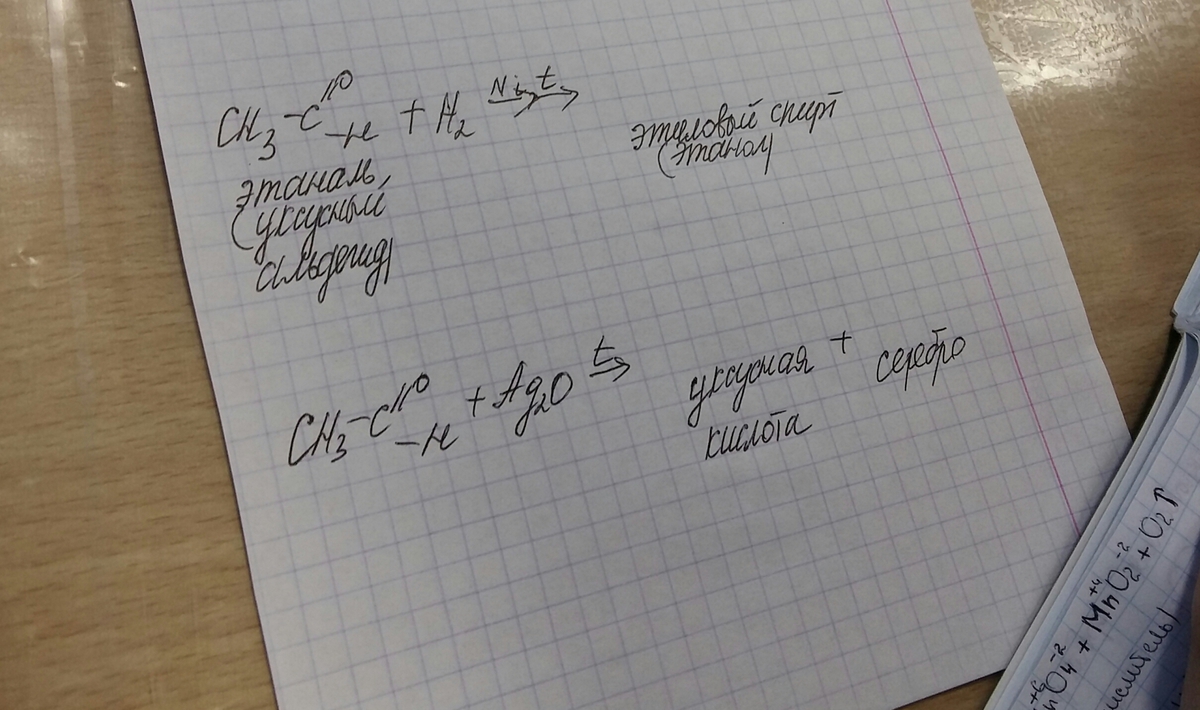 CH₃-C//O-H + H₂ Ni, t →
этиловый спирт
(этанол)
этаналь,
(уксусный
альдегид)
CH₃-C//O-H + Ag₂O t →
уксусная + серебро
кислота
O₄⁻² + Mn⁺⁴O₂⁻² + O₂↑